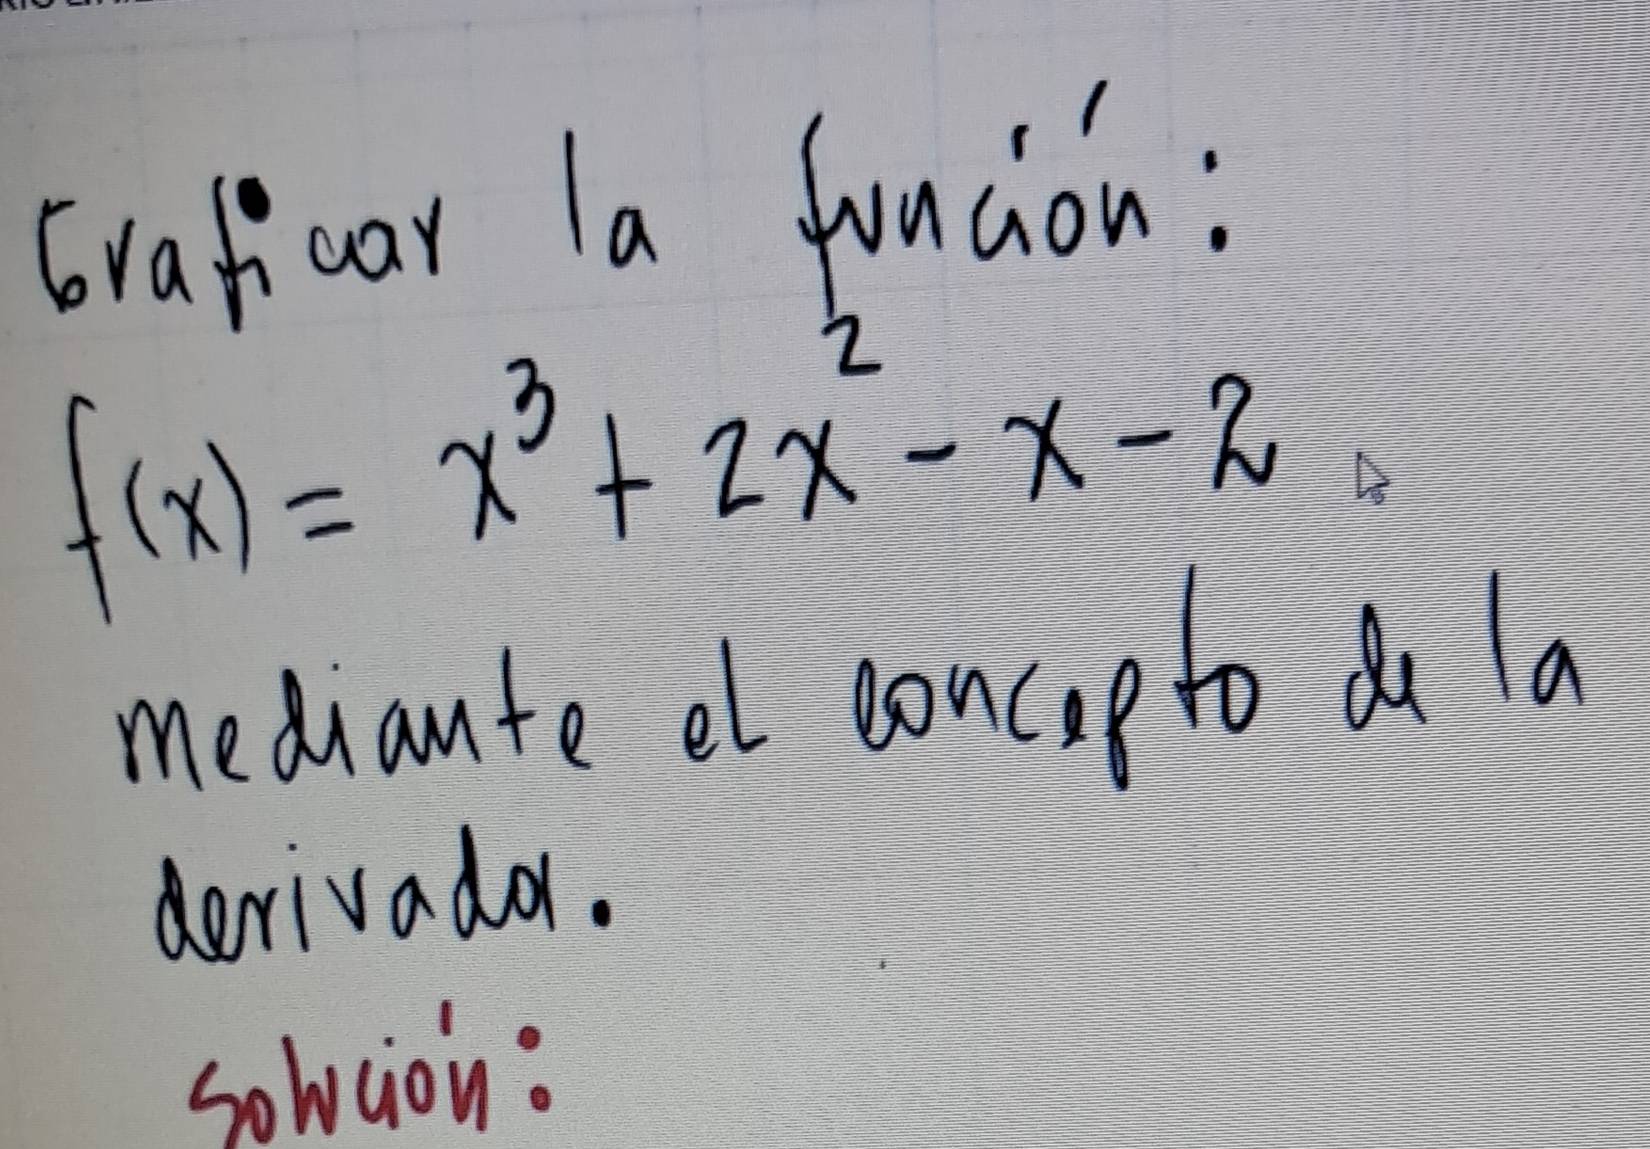 Graficar la función:
f(x) = x³ + 2x² - x - 2
mediante el concepto de la
derivada.
Solución: